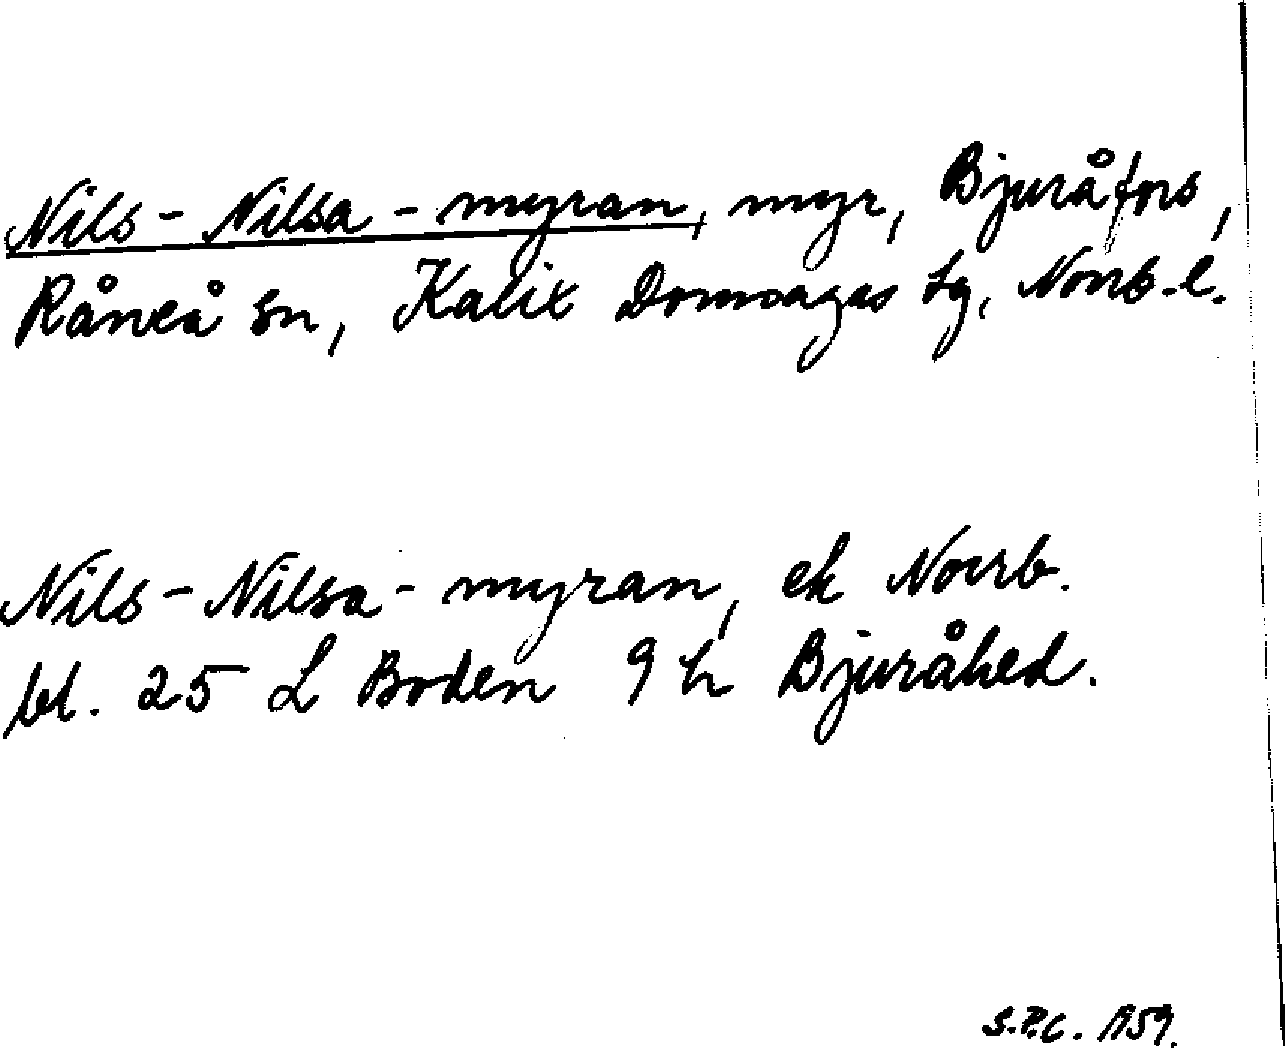 Nils-Nilsa-myran, myr, Bjuråfors,
Råneå sn, Kalix Domsagas tg, Norrb.l.
Nils-Nilsa-myran, ek Norrb.
bl. 25 L Boden 9 h Bjuråhed.
S.P.C. 1959.